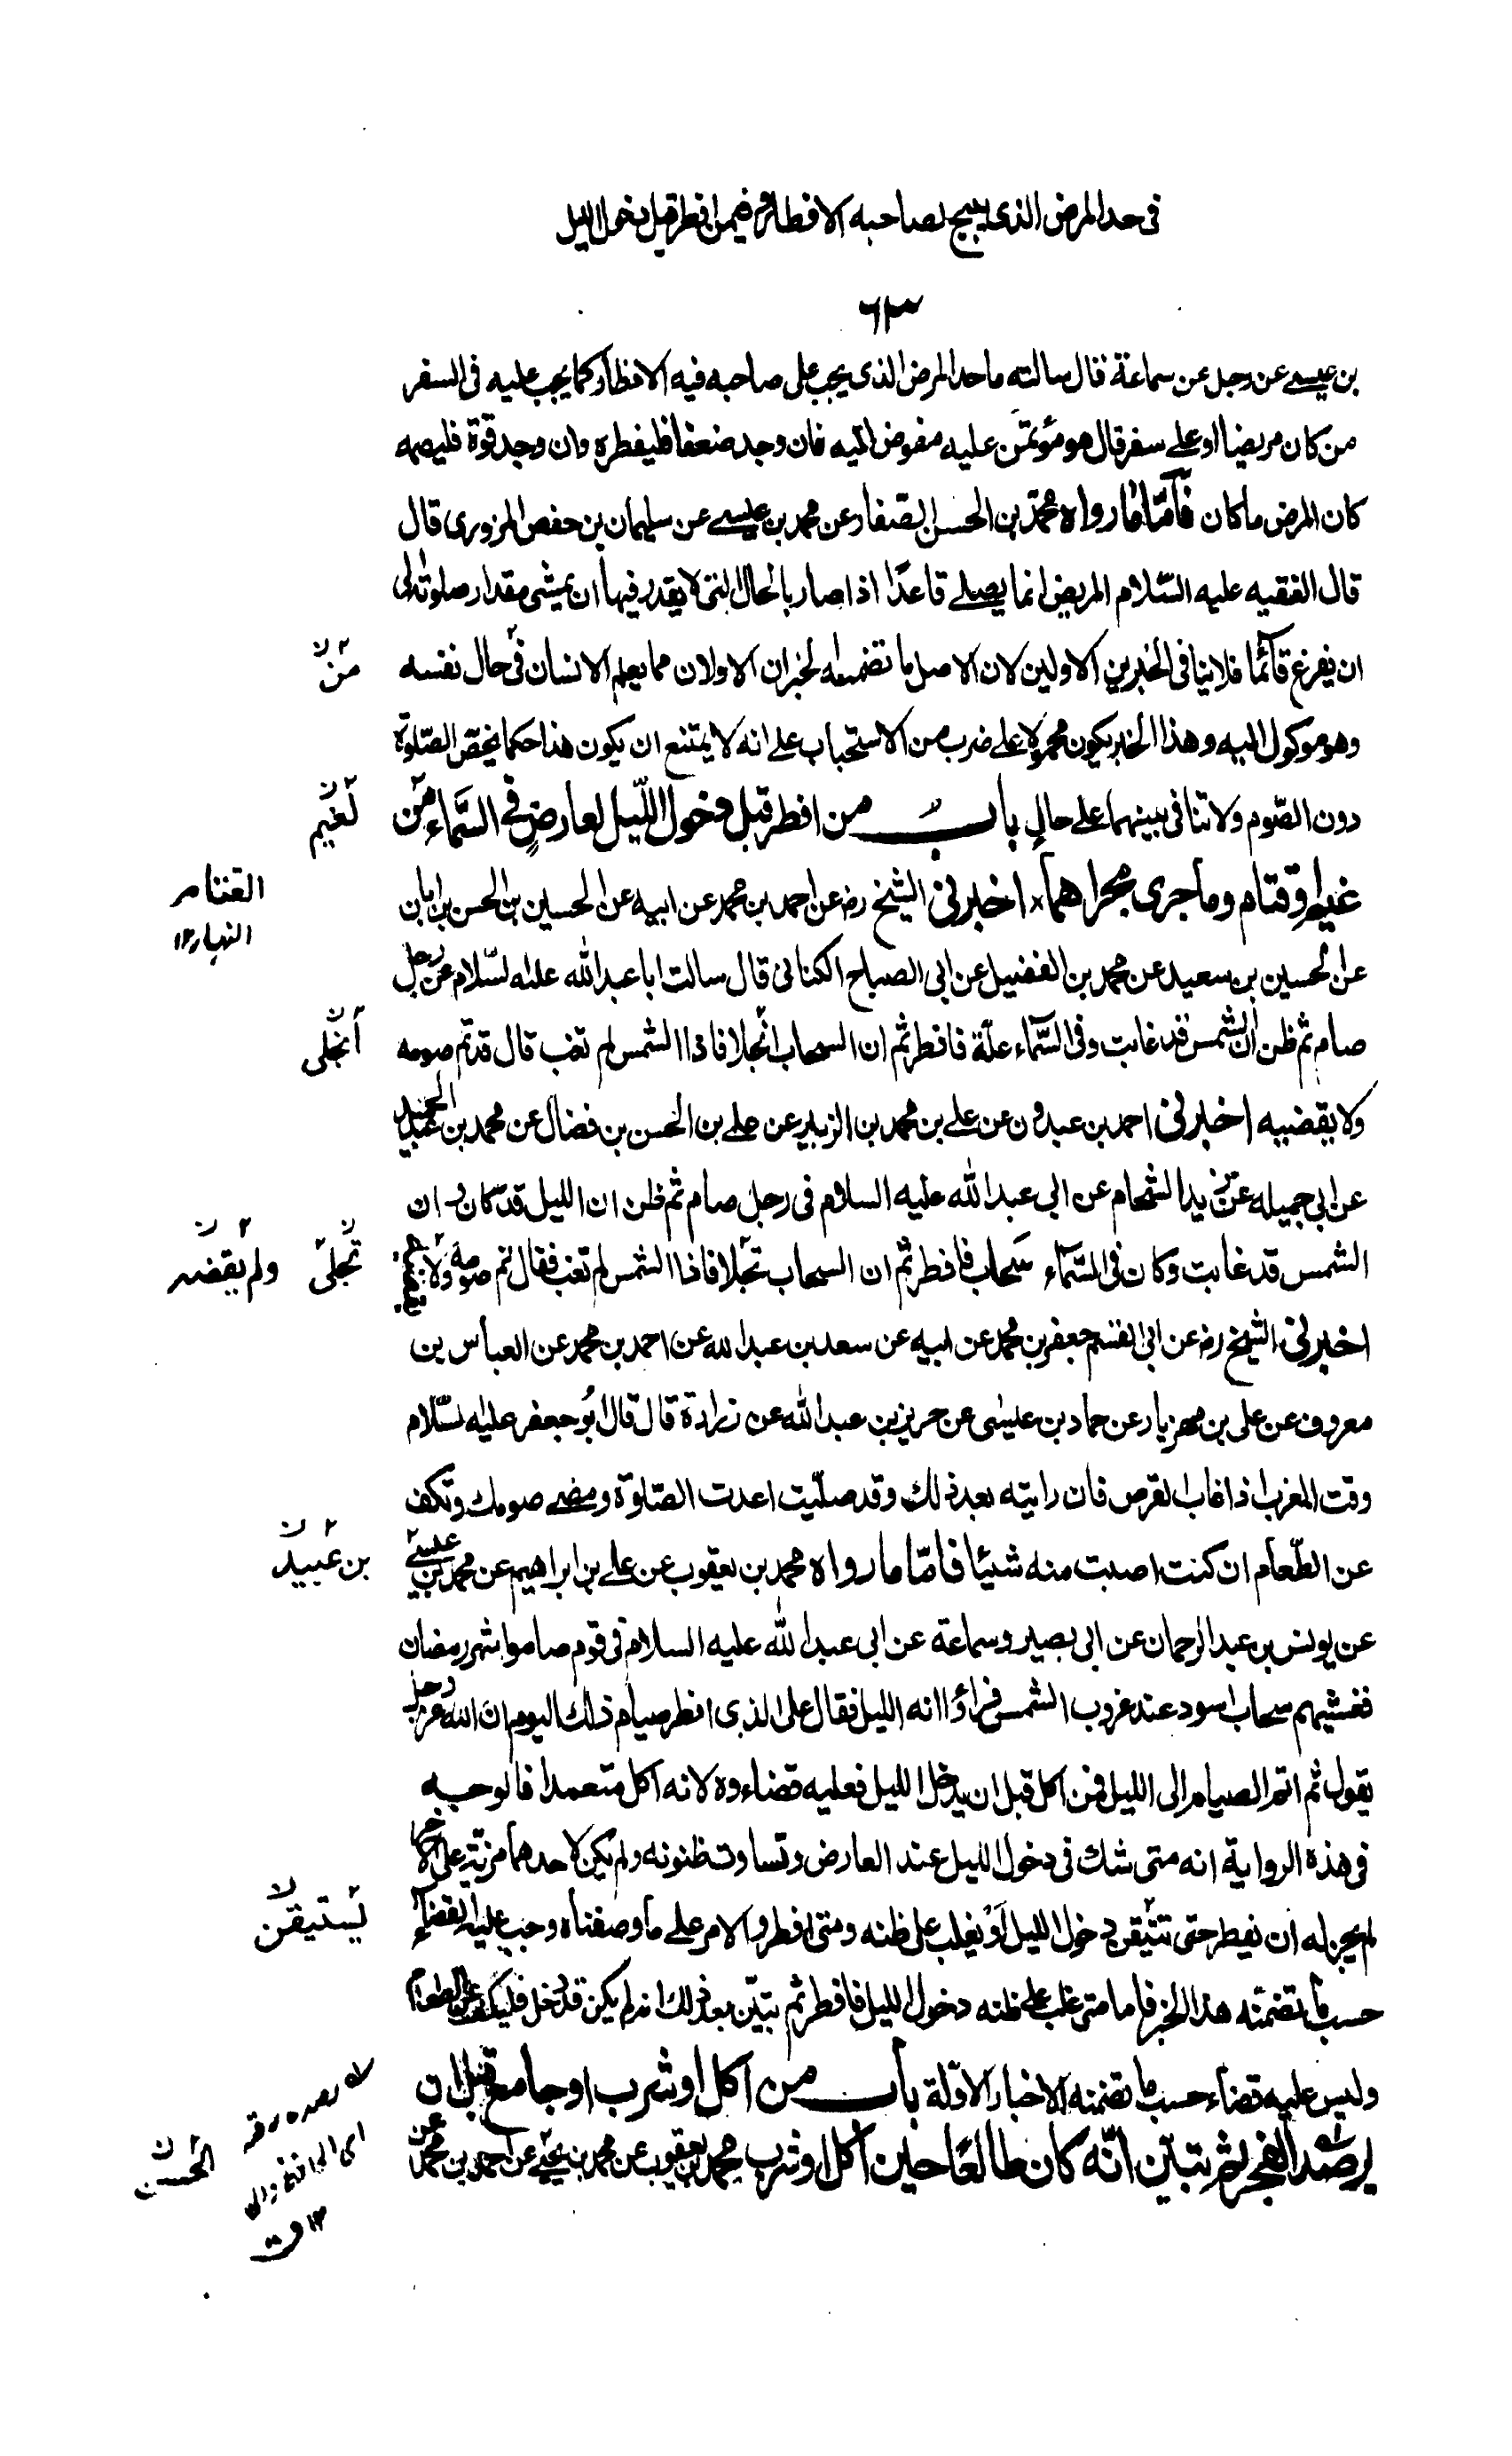 فى حد المرض الذى يبيح لصاحبه الافطار وفيمن افطر قبل دخول الليل
٦٣
بن عيسى عن رجل عن سماعة قال سالته ما حد المرض الذى يجب على صاحبه فيه الافطار كما يجب عليه فى السفر
من كان مريضا او على سفر قال هو مؤتمن عليه مفوض اليه فان وجد ضعفا فليفطره وان وجد قوة فليصمه
كان المرض ما كان فأمّا ما رواه محمّد بن الحسن الصفار عن محمد بن عيسى عن سليمان بن حفص المروزى قال
قال الفقيه عليه السّلام المريض انما يصلى قاعدًا اذا صار بالحال التى لا يقدر فيها ان يمشى مقدار صلوته الى
ان يفرغ قائمًا فلا ينافى الخبرين الاولين لان الاصل ما تضمنه الخبران الاولان مما يعلم الانسان فى حال نفسه
من
وهو موكول اليه وهذا الخبر يكون محمولا على ضرب من الاستحباب على انه لا يمتنع ان يكون هذا حكما يخص الصّلوة
دون الصّوم ولا تنافى بينهما على حال باب من افطر قبل دخول اللّيل لعارضٍ فى السّماء من
لغيم
غيم او قتام وما جرى مجراهما اخبرنى الشيخ رض عن احمد بن محمد عن ابيه عن الحسين بن الحسن بن ابان
القتام
الغبار ١٢
عن الحسين بن سعيد عن محمد بن الفضيل عن ابى الصباح الكنانى قال سالت ابا عبد الله عليه السّلام عن رجل
صام ثم ظن ان الشمس قد غابت وفى السّماء علّة فافطر ثم ان السحاب انجلا فاذا الشمس لم تغب قال قد تم صومه
انجلى
ولا يقضيه اخبرنى احمد بن عبدون عن على بن محمد بن الزبير عن على بن الحسن بن فضال عن محمد بن عبد الحميد
عن ابى جميله عن زيد الشحام عن ابى عبد الله عليه السلام فى رجل صام ثم ظن ان الليل قد كان وان
الشمس قد غابت وكان فى السّماء سحاب فافطر ثم ان السحاب تجلا فاذا الشمس لم تغب فقال تم صومه ولا يقضيه
تجلى
ولم يقضه
اخبرنى الشيخ رض عن ابى القسم جعفر بن محمد عن ابيه عن سعد بن عبد الله عن احمد بن محمد عن العباس بن
معروف عن على بن مهزيار عن حماد بن عيسى عن حريز بن عبد الله عن زرارة قال قال ابو جعفر عليه السّلام
وقت المغرب اذا غاب القرص فان رايته بعد ذلك وقد صلّيت اعدت الصّلوة ومضى صومك وتكف
عن الطّعام ان كنت اصبت منه شيئا فامّا ما رواه محمد بن يعقوب عن على بن ابراهيم عن محمد بن عيسى
بن عبيد
عن يونس بن عبد الرحمان عن ابى بصير وسماعة عن ابى عبد الله عليه السلام فى قوم صاموا شهر رمضان
فغشيهم سحاب اسود عند غروب الشمس فراؤا انه الليل فقال على الذى افطر صيام ذلك اليوم ان الله عز وجل
يقول ثم اتموا الصيام الى الليل فمن اكل قبل ان يدخل الليل فعليه قضاءه لانه اكل متعمدا فالوجه
فى هذه الرواية انه متى شك فى دخول الليل عند العارض وتساوت ظنونه ولم يكن لاحدهما مزية على الاخر
لم يجز له ان يفطر حتى تيّقن دخول الليل او يغلب على ظنه ومتى افطر والامر على ما وصفناه وجب عليه القضاء
يستيقن
حسب ما تضمنه هذا الخبر فاما متى غلب على ظنه دخول الليل فافطر ثم تبيّن بعد ذلك انه لم يكن قد دخل فليكف عن الطعام
وليس عليه قضاء حسب ما تضمنه الاخبار الاولة باب من اكل او شرب او جامع قبل ان
يرصد الفجر ثم تبيّن انّه كان طالعًا حين اكل او شرب محمد بن يعقوب عن محمد بن يحيى عن احمد بن محمد عن
الحسن